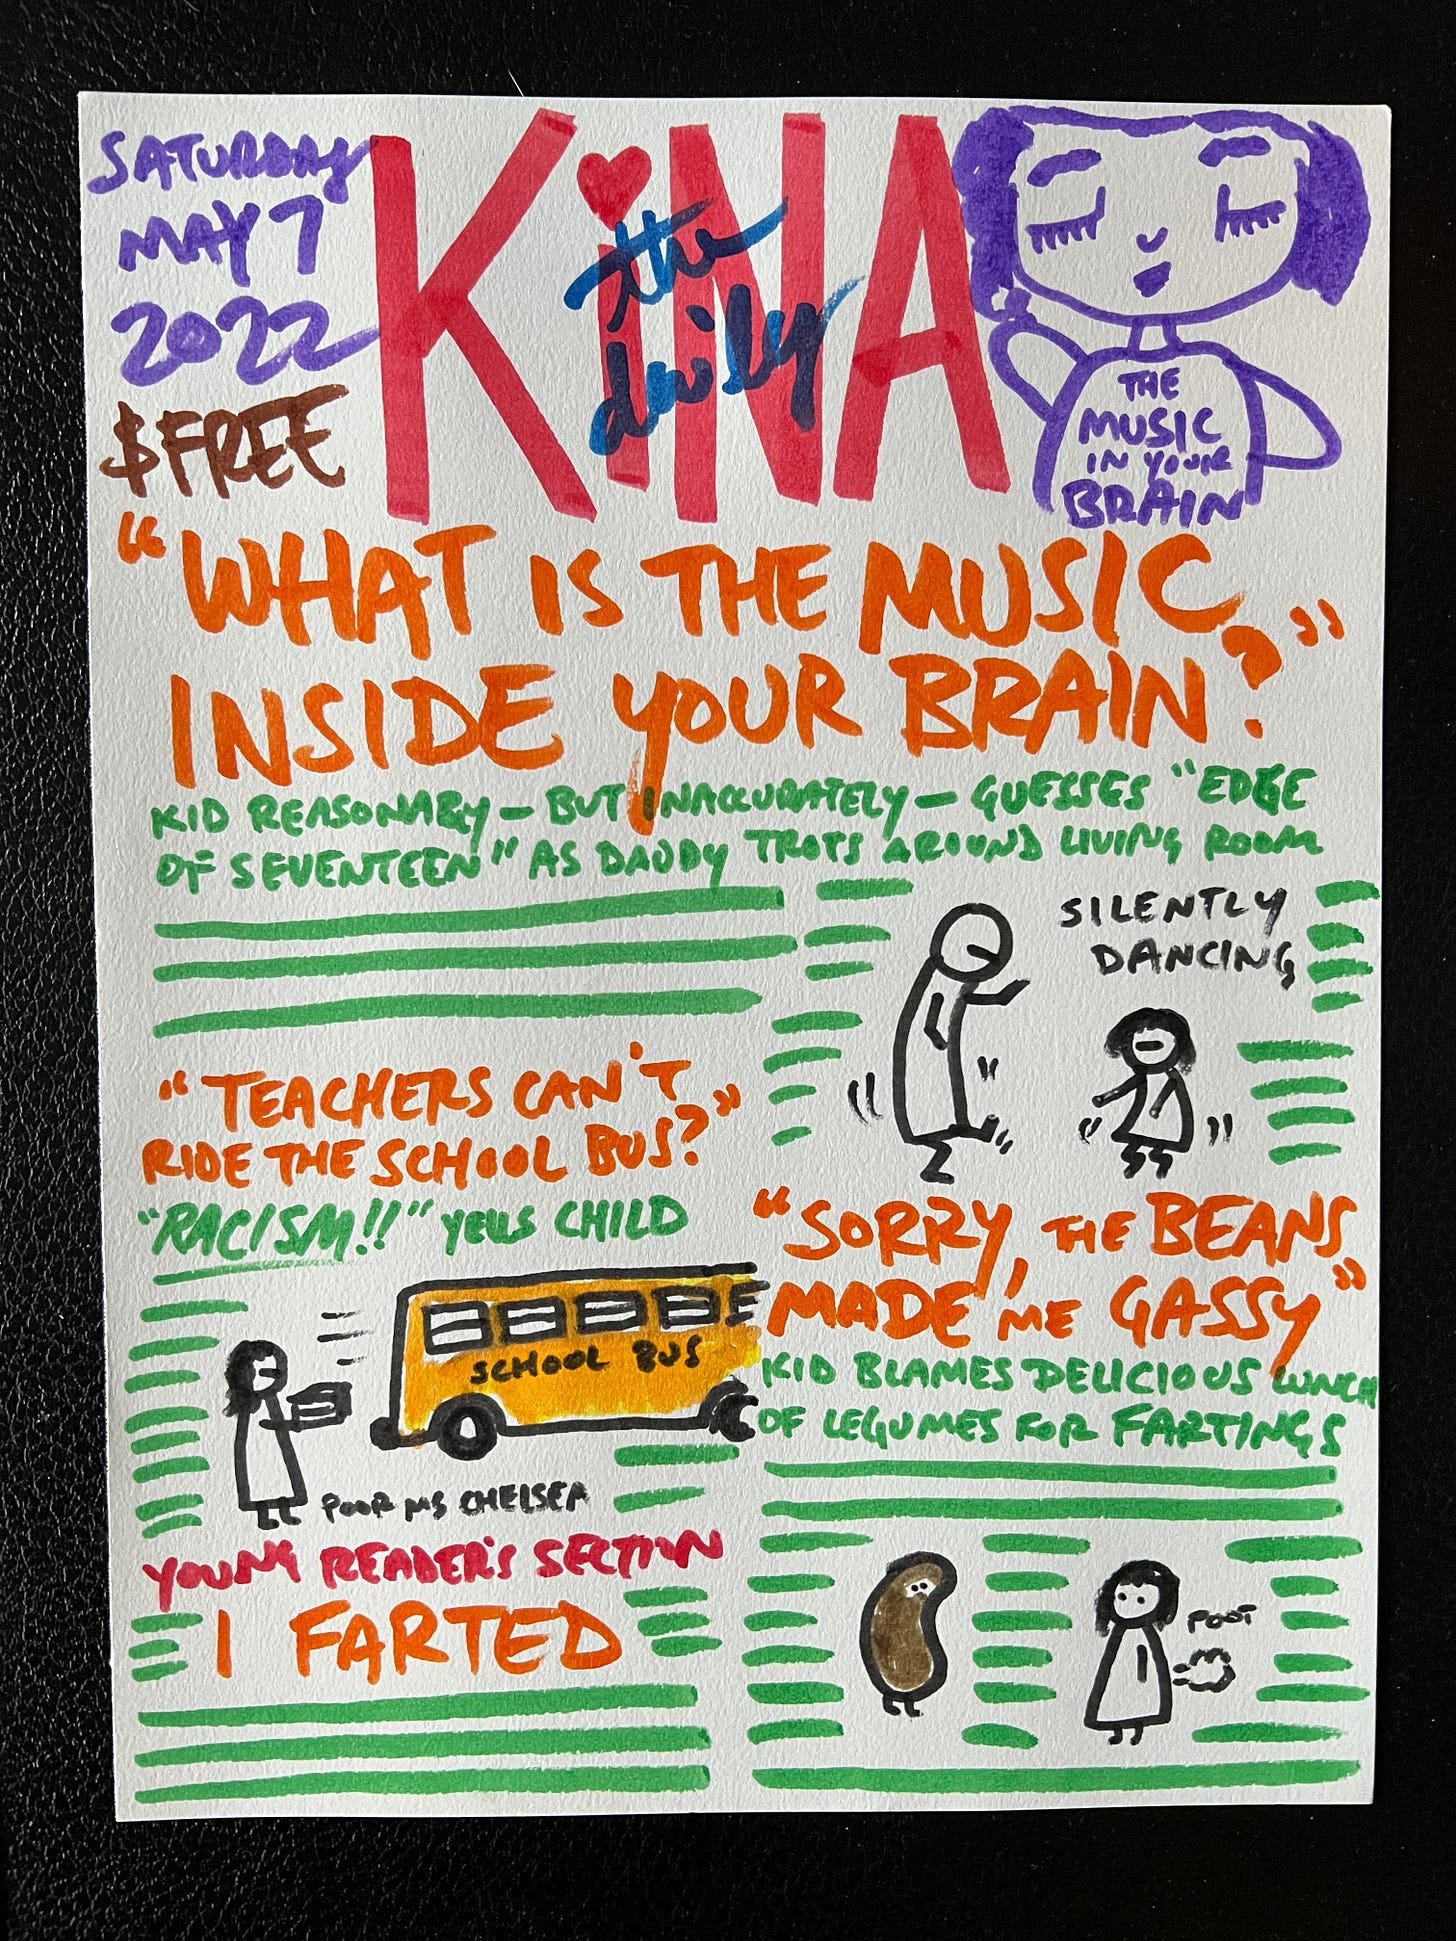 SATURDAY
MAY 7
2022
$FREE
KiNA
the
daily
THE
MUSIC
IN YOUR
BRAIN
"WHAT IS THE MUSIC
INSIDE YOUR BRAIN?"
KID REASONABLY — BUT INACCURATELY — GUESSES "EDGE
OF SEVENTEEN" AS DADDY TROTS AROUND LIVING ROOM
SILENTLY
DANCING
"TEACHERS CAN'T
RIDE THE SCHOOL BUS?"
"RACISM!!" YELLS CHILD
SCHOOL BUS
POOR MS CHELSEA
"SORRY, THE BEANS
MADE ME GASSY"
KID BLAMES DELICIOUS LUNCH
OF LEGUMES FOR FARTINGS
POOT
YOUNG READER'S SECTION
I FARTED